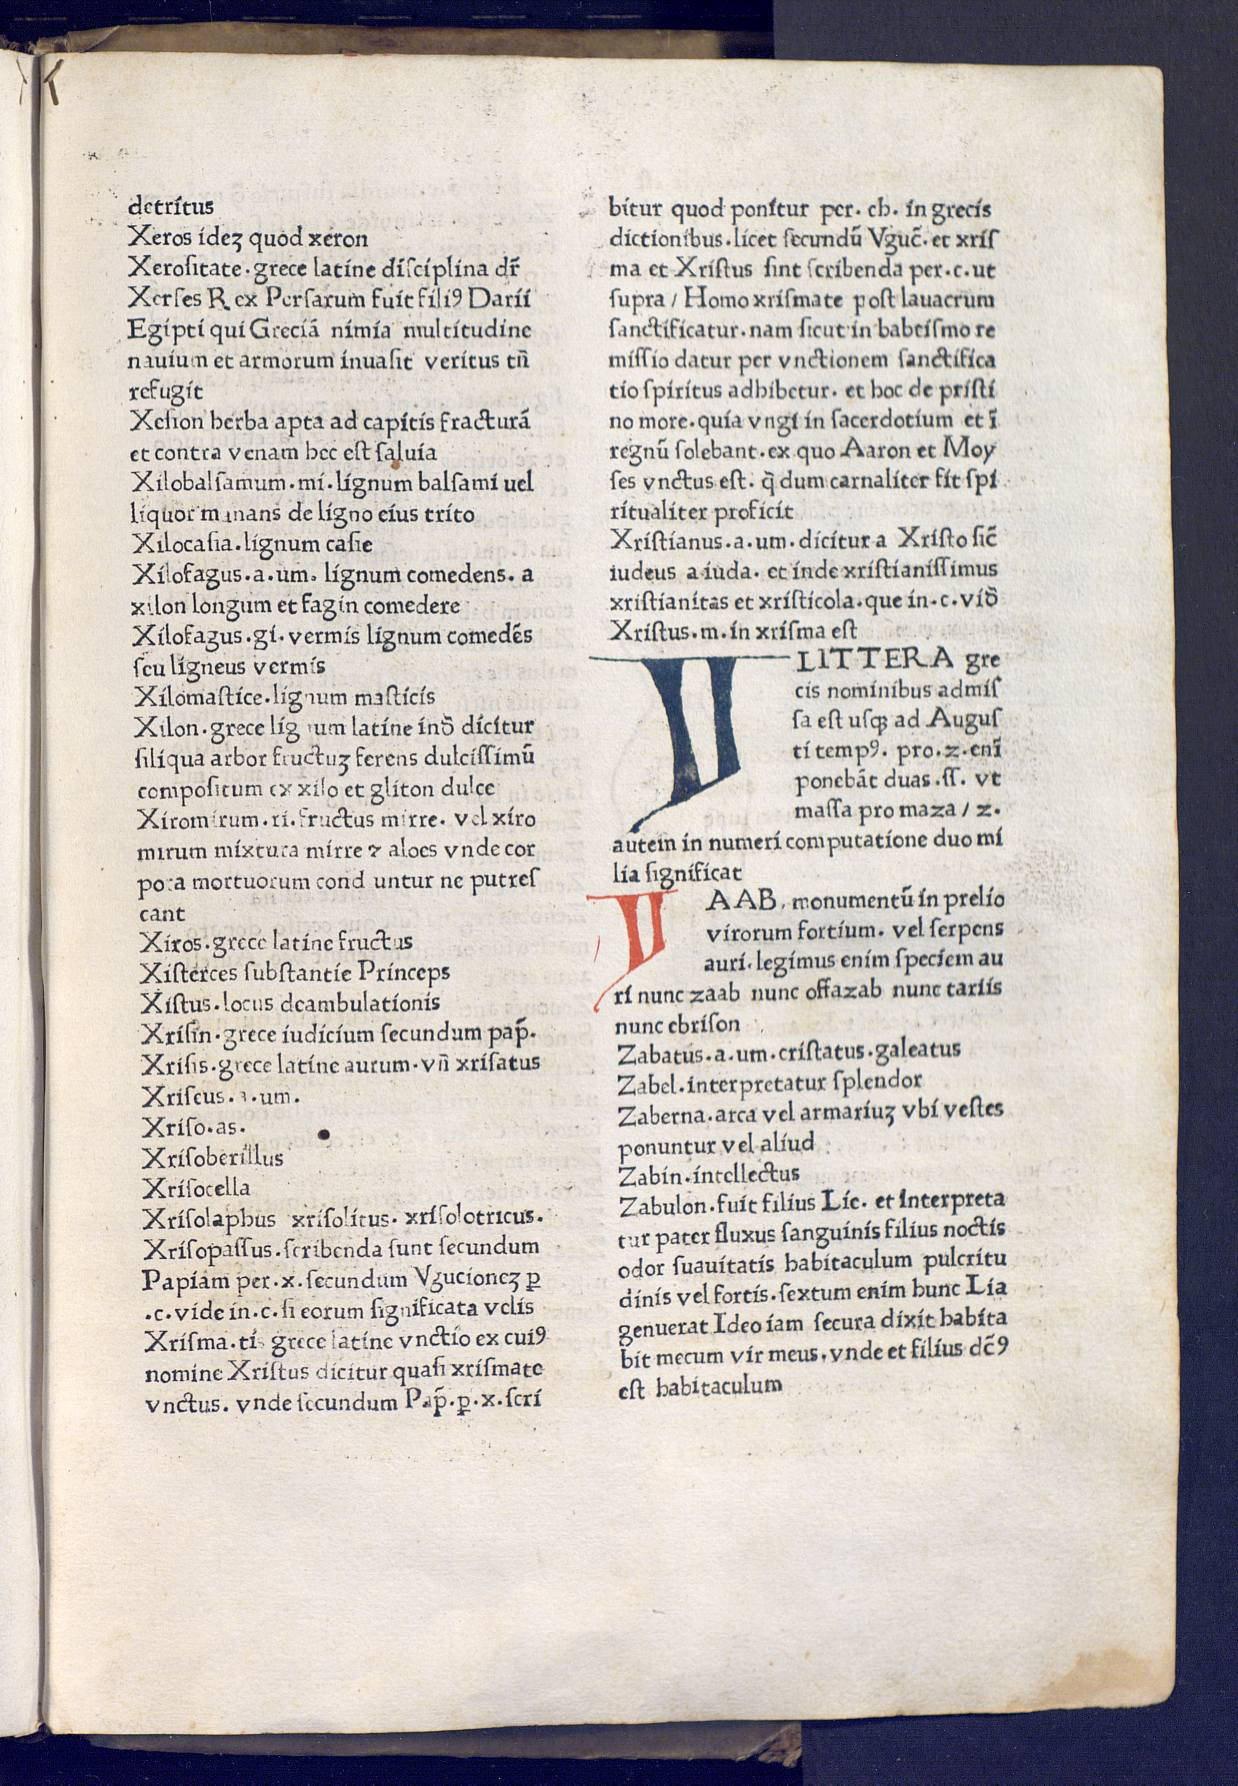 detritus
Xeros ideꝫ quod xeron
Xeroſitate·grece latine diſciplina dr̃
Xerſes Rex Perſarum fuit filiꝰ Darii
Egipti qui Greciã nimia multitudine
nauium et armorum inuaſit veritus tñ
refugit
Xeſion herba apta ad capitis fracturã
et contra venam hec eſt ſaluia
Xilobalſamum·mi·lignum balſami uel
liquor manans de ligno eius trito
Xilocaſia·lignum caſie
Xilofagus·a·um· lignum comedens· a
xilon longum et fagin comedere
Xilofagus·gi·vermis lignum comedẽs
ſeu ligneus vermis
Xilomaſtice·lignum maſticis
Xilon·grece lignum latine inð dicitur
ſiliqua arbor fructuꝫ ferens dulciſſimũ
compoſitum ex xilo et gliton dulce
Xiromirum·ri·fructus mirre· vel xiro
mirum mixtura mirre ⁊ aloes vnde cor
pora mortuorum cond untur ne putreſ
cant
Xiros·grece latine fructus
Xiſterces ſubſtantie Princeps
Xiſtus·locus deambulationis
Xriſin·grece iudicium ſecundum pap̃·
Xriſis·grece latine aurum·vñ xriſatus
Xriſeus·a·um·
Xriſo·as·
Xriſoberillus
Xriſocella
Xriſolaphus xriſolitus· xriſolotricus·
Xriſopaſſus·ſcribenda ſunt ſecundum
Papiam per·x·ſecundum Vgucioneꝫ ꝑ
·c·vide in·c·ſi eorum ſignificata velis
Xriſma·tis grece latine vnctio ex cuiꝰ
nomine Xriſtus dicitur quaſi xriſmate
vnctus· vnde ſecundum Pap̃·ꝑ·x·ſcri
bitur quod ponitur per·ch·in grecis
dictionibus·licet ſecundũ Vguc̃·et xriſ
ma et Xriſtus ſint ſcribenda per·c·ut
ſupra / Homo xriſmate poſt lauacrum
ſanctificatur·nam ſicut in babtiſmo re
miſſio datur per vnctionem ſanctifica
tio ſpiritus adhibetur· et hoc de priſti
no more·quia vngi in ſacerdotium et ĩ
regnũ ſolebant·ex quo Aaron et Moy
ſes vnctus eſt· q̃ dum carnaliter fit ſpi
ritualiter proficit
Xriſtianus·a·um·dicitur a Xriſto ſic̃
iudeus a iuda· et inde xriſtianiſſimus
xriſtianitas et xriſticola·que in·c·við
Xriſtus·m·in xriſma eſt
Z LITTERA gre
cis nominibus admiſ
ſa eſt uſqꝫ ad Auguſ
ti tempꝰ· pro·z·enĩ
ponebãt duas·ſſ· vt
maſſa pro maza / z·
autem in numeri computatione duo mi
lia ſignificat
Z AAB·monumentũ in prelio
virorum fortium· vel ſerpens
auri·legimus enim ſpeciem au
ri nunc zaab nunc offazab nunc tariis
nunc ebriſon
Zabatus·a·um·criſtatus·galeatus
Zabel·interpretatur ſplendor
Zaberna·arca vel armariuꝫ vbi veſtes
ponuntur vel aliud
Zabin·intellectus
Zabulon·fuit filius Lie· et interpreta
tur pater fluxus ſanguinis filius noctis
odor ſuauitatis habitaculum pulcritu
dinis vel fortis·ſextum enim hunc Lia
genuerat Ideo iam ſecura dixit habita
bit mecum vir meus·vnde et filius dc̃ꝰ
eſt habitaculum